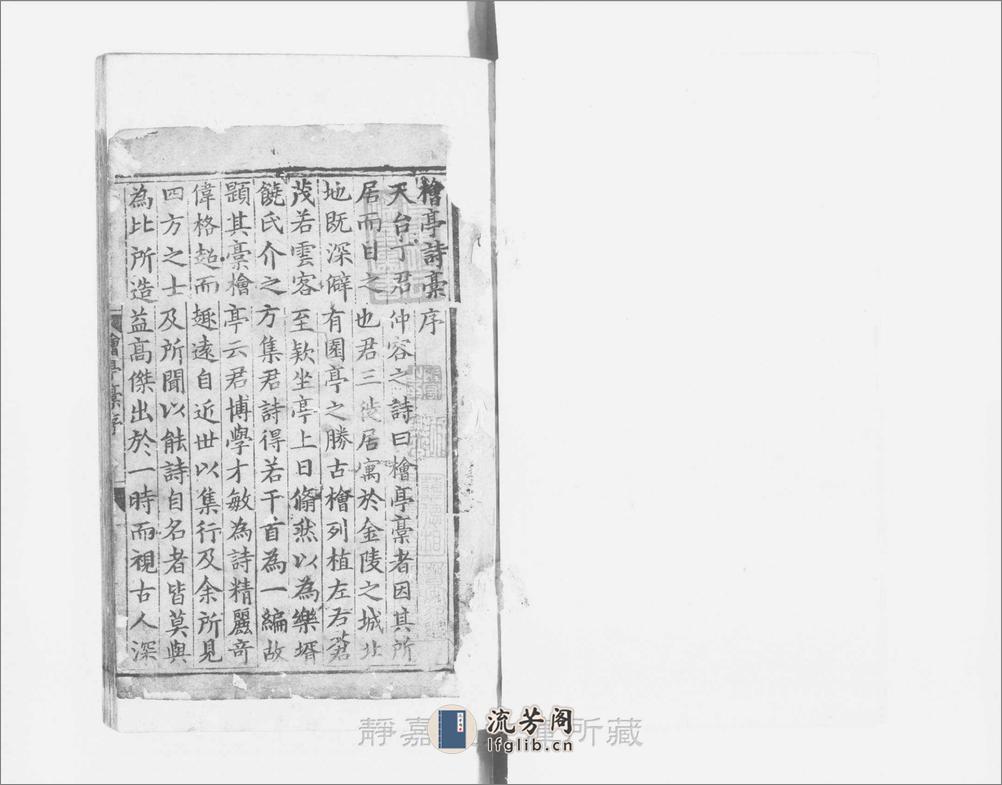 檜亭詩藁序
天台丁君仲容之詩曰檜亭藁者因其所
居而日之也君三徙居寓於金陵之城北
地既深僻有園亭之勝古檜列植左右蒼
茂若雲客至欵坐亭上日翛然以為樂壻
饒氏介之方集君詩得若干首為一編故
題其藁檜亭云君博學才敏為詩精麗竒
偉格超而趣遠自近世以集行及余所見
四方之士及所聞以能詩自名者皆莫與
為比所造益髙傑出於一時而視古人深
檜亭藁序
靜嘉 所藏
流芳阁
lfglib.cn